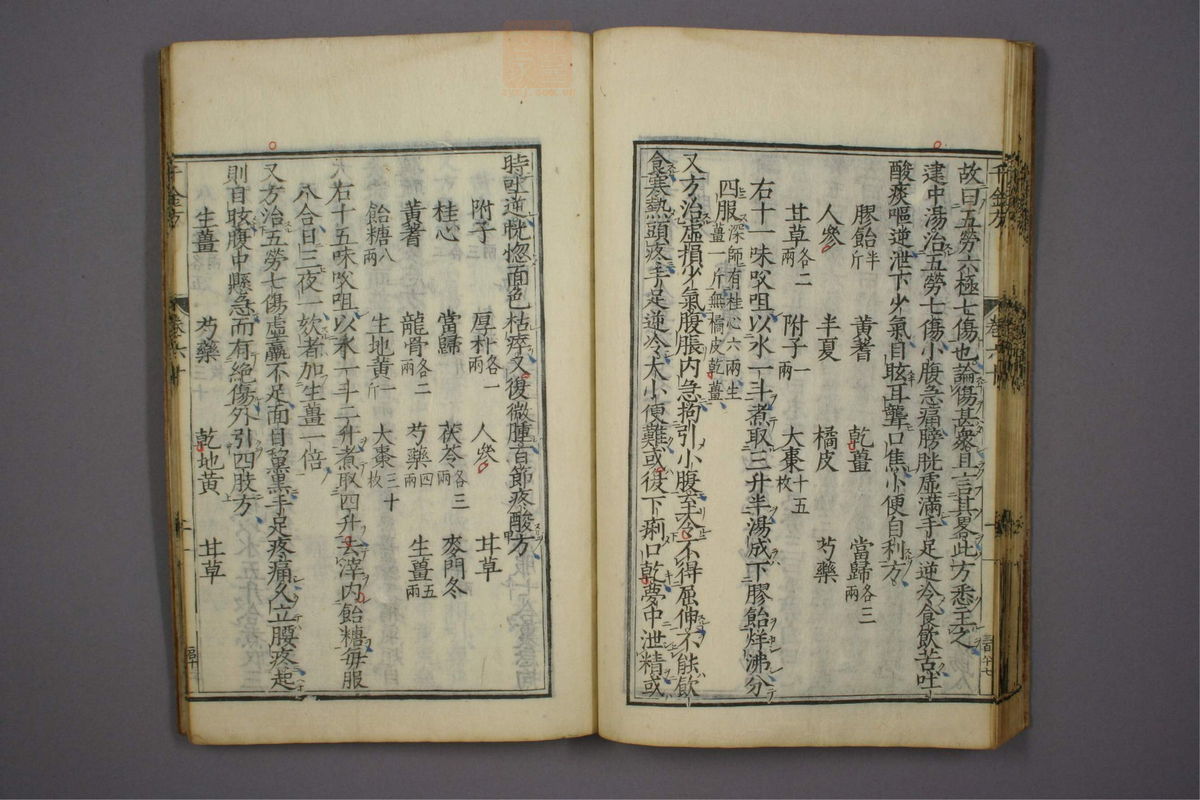 故曰五勞六極七傷也論傷甚衆且言其畧此方悉主之
建中湯治五勞七傷小腹急痛膀胱虛滿手足逆冷食飲苦吐
酸痰嘔逆泄下少氣目眩耳聾口焦小便自利方
膠飴半斤 黃耆 乾薑 當歸各三兩
人參 半夏 橘皮 芍藥
甘草各二兩 附子一兩 大棗十五枚
右十一味㕮咀以水一斗煮取三升半湯成下膠飴烊沸分
四服深師有桂心六兩生薑一斤無橘皮乾薑
又方治虛損少氣腹脹内急拘引小腹至冷不得屈伸不能飲
食寒熱頭疼手足逆冷大小便難或復下痢口乾夢中泄精或
時吐逆恍惚面色枯瘁又復微腫百節疼酸方
附子 厚朴各一兩 人參 甘草
桂心 當歸 茯苓各三兩 麥門冬
黃耆 龍骨各二兩 芍藥四兩 生薑五兩
飴糖八兩 生地黃一斤 大棗三十枚
右十五味㕮咀以水一斗二升煮取四升去滓内飴糖每服
八合日三夜一欬者加生薑一倍
又方治五勞七傷虛羸不足面目黧黑手足疼痛久立腰疼起
則目眩腹中縣急而有絕傷外引四肢方
生薑 芍藥 乾地黃 甘草
千金方
千金方